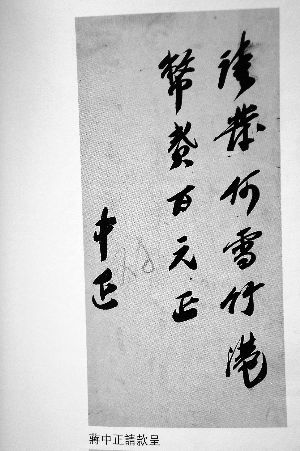 請發何雪竹港
幣叁百元正
中正
蔣中正請款呈